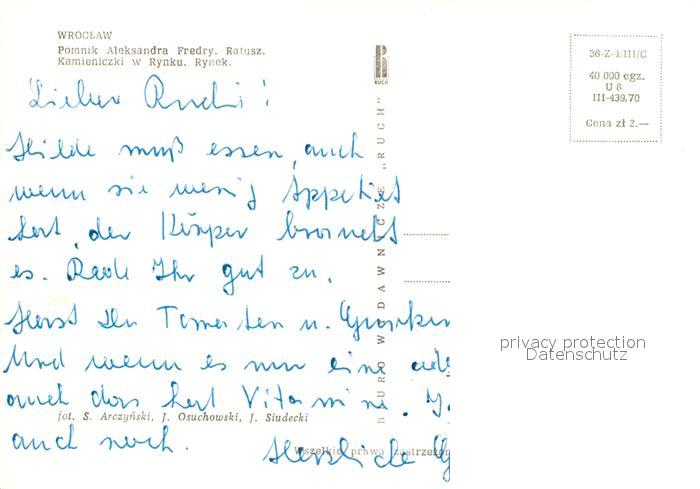 WROCŁAW
Pomnik Aleksandra Fredry. Ratusz.
Kamieniczki w Rynku. Rynek.
RUCH
36-Z-4/III/C
40 000 egz.
U 8
III-439,70
Cena zł 2.—
Lieber Rudi!
Hilde muß essen, auch
wenn sie wenig Appetit
hat, der Körper braucht
es. Rede Ihr gut zu.
Hast Du Tomaten u. Gurken
Und wenn es nur eine
auch das hat Vitamine.
auch noch.
Herzliche G
BIURO WYDAWNICZE „RUCH"
fot. S. Arczyński, J. Osuchowski, J. Siudecki
Wszelkie prawa zastrzeżon
privacy protection
Datenschutz